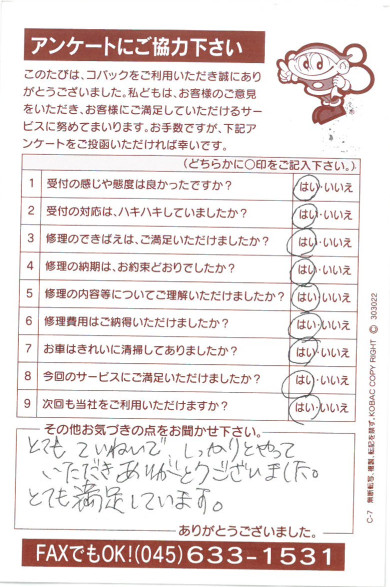 アンケートにご協力下さい
このたびは、コバックをご利用いただき誠にあり
がとうございました。私どもは、お客様のご意見
をいただき、お客様にご満足していただけるサー
ビスに努めてまいります。お手数ですが、下記ア
ンケートをご投函いただければ幸いです。
(どちらかに○印をご記入下さい。)
1 受付の感じや態度は良かったですか? はい・いいえ
2 受付の対応は、ハキハキしていましたか? はい・いいえ
3 修理のできばえは、ご満足いただけましたか? はい・いいえ
4 修理の納期は、お約束どおりでしたか? はい・いいえ
5 修理の内容等についてご理解いただけましたか? はい・いいえ
6 修理費用はご納得いただけましたか? はい・いいえ
7 お車はきれいに清掃してありましたか? はい・いいえ
8 今回のサービスにご満足いただけましたか? はい・いいえ
9 次回も当社をご利用いただけますか? はい・いいえ
その他お気づきの点をお聞かせ下さい。
とてもていねいで、しっかりとやって
いただきありがとうございました。
とても満足しています。
ありがとうございました。
FAXでもOK!(045)633-1531
C-7 無断転写、複製、転記を禁ず。KOBAC COPY RIGHT © 303022